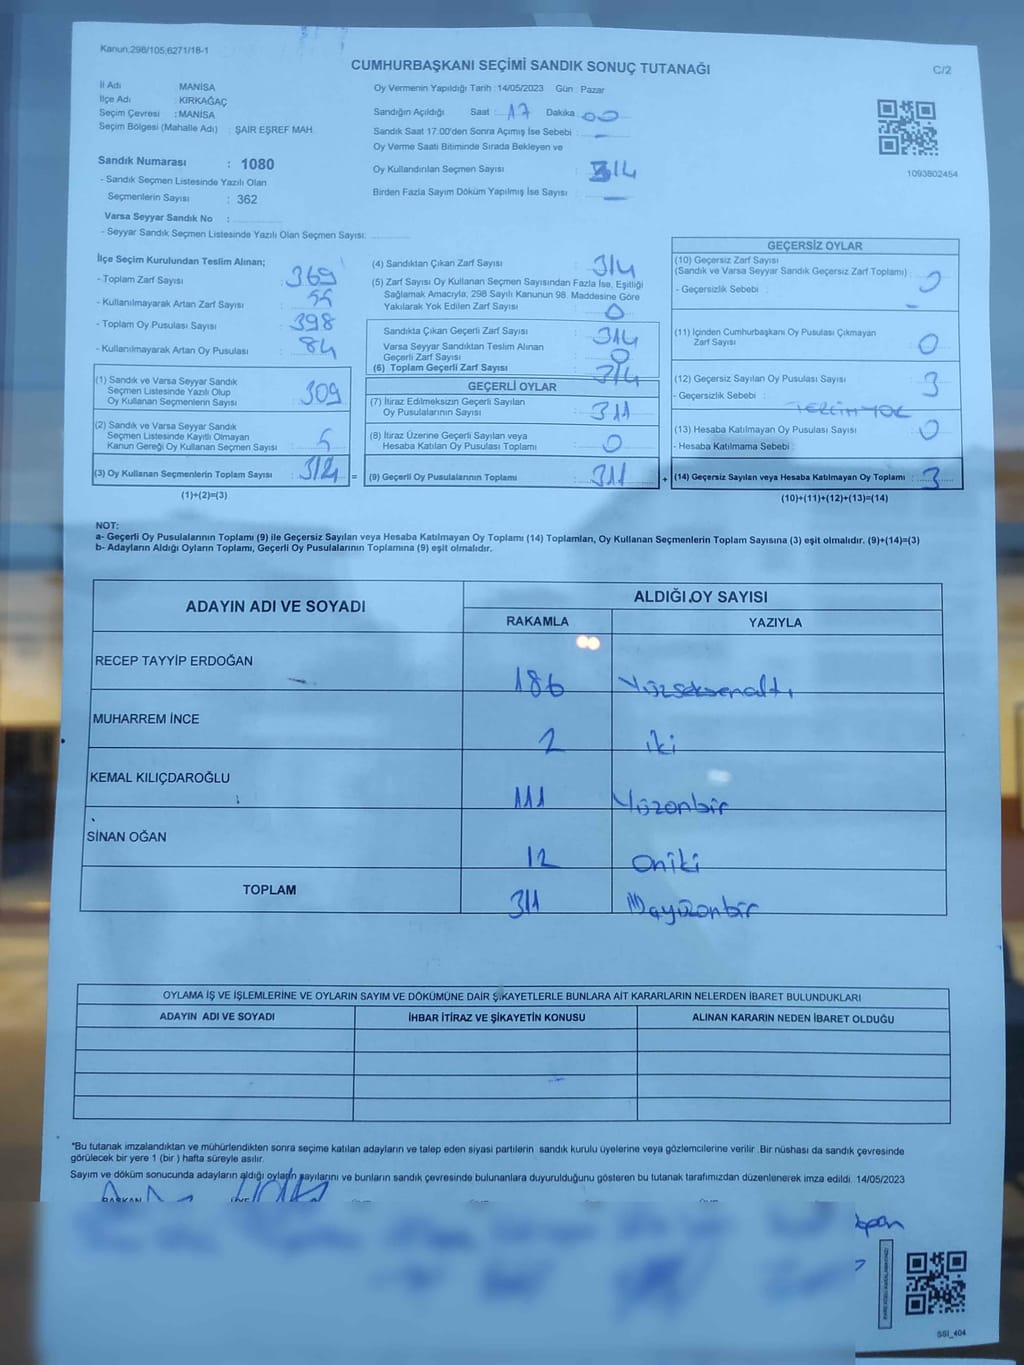 Kanun:298/105,6271/18-1
CUMHURBAŞKANI SEÇİMİ SANDIK SONUÇ TUTANAĞI
C/2
İl Adı : MANİSA
İlçe Adı : KIRKAĞAÇ
Seçim Çevresi : MANİSA
Seçim Bölgesi (Mahalle Adı) : ŞAİR EŞREF MAH.
Sandık Numarası : 1080
- Sandık Seçmen Listesinde Yazılı Olan
Seçmenlerin Sayısı : 362
Varsa Seyyar Sandık No :
- Seyyar Sandık Seçmen Listesinde Yazılı Olan Seçmen Sayısı:
Oy Vermenin Yapıldığı Tarih :14/05/2023 Gün : Pazar
Sandığın Açıldığı Saat : 17 Dakika : 00
Sandık Saat 17.00'den Sonra Açımış İse Sebebi : -
Oy Verme Saati Bitiminde Sırada Bekleyen ve
Oy Kullandırılan Seçmen Sayısı : 314
Birden Fazla Sayım Döküm Yapılmış İse Sayısı : -
1093802454
İlçe Seçim Kurulundan Teslim Alınan;
- Toplam Zarf Sayısı : 369
- Kullanılmayarak Artan Zarf Sayısı : 55
- Toplam Oy Pusulası Sayısı : 398
- Kullanılmayarak Artan Oy Pusulası : 84
(1) Sandık ve Varsa Seyyar Sandık
Seçmen Listesinde Yazılı Olup
Oy Kullanan Seçmenlerin Sayısı : 309
(2) Sandık ve Varsa Seyyar Sandık
Seçmen Listesinde Kayıtlı Olmayan
Kanun Gereği Oy Kullanan Seçmen Sayısı : 5
(3) Oy Kullanan Seçmenlerin Toplam Sayısı : 314 =
(1)+(2)=(3)
(4) Sandıktan Çıkan Zarf Sayısı : 314
(5) Zarf Sayısı Oy Kullanan Seçmen Sayısından Fazla İse, Eşitliği
Sağlamak Amacıyla, 298 Sayılı Kanunun 98. Maddesine Göre
Yakılarak Yok Edilen Zarf Sayısı : 0
Sandıkta Çıkan Geçerli Zarf Sayısı : 314
Varsa Seyyar Sandıktan Teslim Alınan
Geçerli Zarf Sayısı : 0
(6) Toplam Geçerli Zarf Sayısı : 314
GEÇERLİ OYLAR
(7) İtiraz Edilmeksizin Geçerli Sayılan
Oy Pusulalarının Sayısı : 311
(8) İtiraz Üzerine Geçerli Sayılan veya
Hesaba Katılan Oy Pusulası Toplamı : 0
(9) Geçerli Oy Pusulalarının Toplamı : 311 +
GEÇERSİZ OYLAR
(10) Geçersiz Zarf Sayısı
(Sandık ve Varsa Seyyar Sandık Geçersiz Zarf Toplamı) : 0
- Geçersizlik Sebebi : -
(11) İçinden Cumhurbaşkanı Oy Pusulası Çıkmayan
Zarf Sayısı : 0
(12) Geçersiz Sayılan Oy Pusulası Sayısı : 3
- Geçersizlik Sebebi : TERCİH YOK
(13) Hesaba Katılmayan Oy Pusulası Sayısı : 0
- Hesaba Katılmama Sebebi :
(14) Geçersiz Sayılan veya Hesaba Katılmayan Oy Toplamı : 3
(10)+(11)+(12)+(13)=(14)
NOT:
a- Geçerli Oy Pusulalarının Toplamı (9) ile Geçersiz Sayılan veya Hesaba Katılmayan Oy Toplamı (14) Toplamları, Oy Kullanan Seçmenlerin Toplam Sayısına (3) eşit olmalıdır. (9)+(14)=(3)
b- Adayların Aldığı Oyların Toplamı, Geçerli Oy Pusulalarının Toplamına (9) eşit olmalıdır.
ADAYIN ADI VE SOYADI
ALDIĞI OY SAYISI
RAKAMLA YAZIYLA
RECEP TAYYİP ERDOĞAN 186 Yüzseksenaltı
MUHARREM İNCE 2 iki
KEMAL KILIÇDAROĞLU 111 Yüzonbir
SİNAN OĞAN 12 oniki
TOPLAM 311
OYLAMA İŞ VE İŞLEMLERİNE VE OYLARIN SAYIM VE DÖKÜMÜNE DAİR ŞİKAYETLERLE BUNLARA AİT KARARLARIN NELERDEN İBARET BULUNDUKLARI
ADAYIN ADI VE SOYADI İHBAR İTİRAZ VE ŞİKAYETİN KONUSU ALINAN KARARIN NEDEN İBARET OLDUĞU
*Bu tutanak imzalandıktan ve mühürlendikten sonra seçime katılan adayların ve talep eden siyasi partilerin sandık kurulu üyelerine veya gözlemcilerine verilir .Bir nüshası da sandık çevresinde
görülecek bir yere 1 (bir ) hafta süreyle asılır.
Sayım ve döküm sonucunda adayların aldığı oyların sayılarını ve bunların sandık çevresinde bulunanlara duyurulduğunu gösteren bu tutanak tarafımızdan düzenlenerek imza edildi. 14/05/2023
BAŞKAN
SSI_404